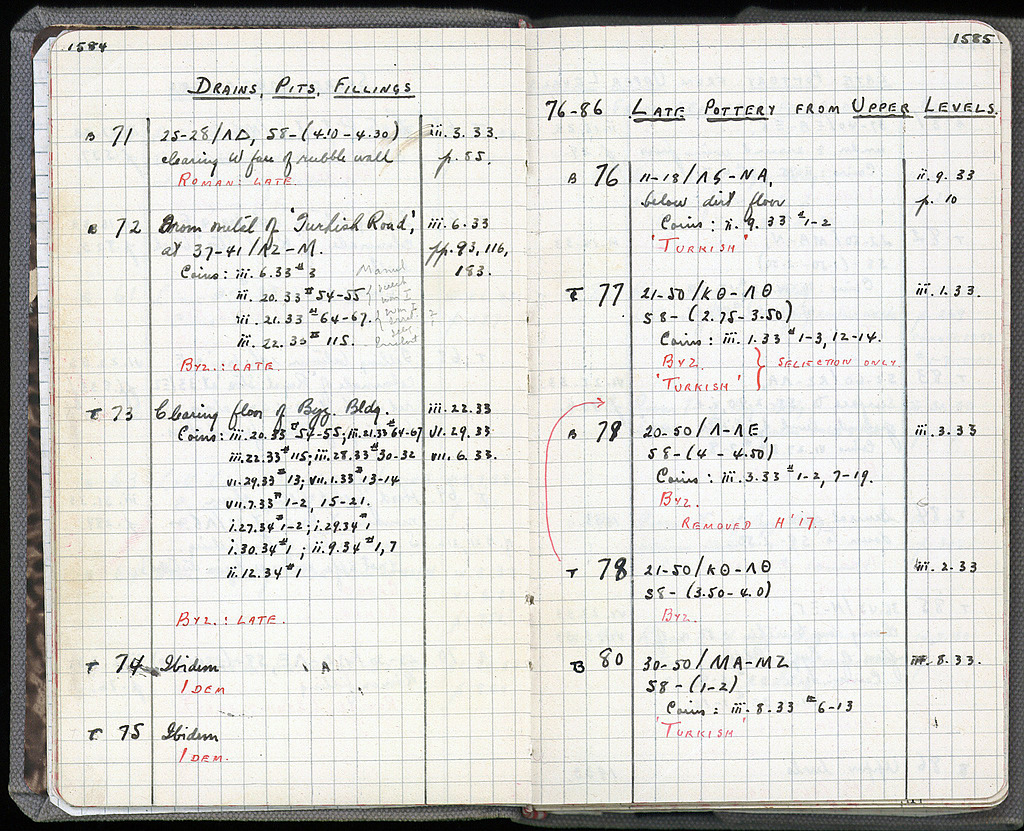 1584
DRAINS, PITS, FILLINGS
B 71 25-28/ΛΔ, 58-(4.10-4.30) iii.3.33.
clearing W face of rubble wall p. 85.
ROMAN: LATE.
B 72 From metal of 'Turkish Road', iii.6.33
at 37-41/ΛΖ-Μ. pp. 93, 116,
Coins: iii.6.33 #3 183.
iii.20.33 #54-55
iii.21.33 #64-67.
iii.22.33 #115.
BYZ.: LATE.
T 73 Clearing floor of Byz. Bldg. iii.22.33
Coins: iii.20.33 #54-55; iii.21.33 #64-67 vi.29.33
iii.22.33 #115; iii.28.33 #30-32 vii.6.33.
vi.29.33 #13; vii.1.33 #13-14
vii.7.33 #1-2, 15-21.
i.27.34 #1-2; i.29.34 #1
i.30.34 #1; ii.9.34 #1,7
ii.12.34 #1
BYZ.: LATE.
T 74 Ibidem
IDEM
T 75 Ibidem
IDEM.
1585
76-86 LATE POTTERY FROM UPPER LEVELS.
B 76 11-18/ΛS-ΝΑ, ii.9.33
below dirt floor p. 10
Coins: ii.9.33 #1-2
'TURKISH'
T 77 21-50/ΚΘ-ΛΘ iii.1.33.
58-(2.75-3.50)
Coins: iii.1.33 #1-3, 12-14.
BYZ. } SELECTION ONLY.
'TURKISH'
B 79 20-50/Λ-ΛΕ, iii.3.33
58-(4-4.50)
Coins: iii.3.33 #1-2, 7-19.
BYZ.
REMOVED H'17.
T 78 21-50/ΚΘ-ΛΘ iii.2.33
58-(3.50-4.0)
BYZ.
B 80 30-50/ΜΑ-ΜΖ iii.8.33.
58-(1-2)
Coins: iii.8.33 #6-13
'TURKISH'